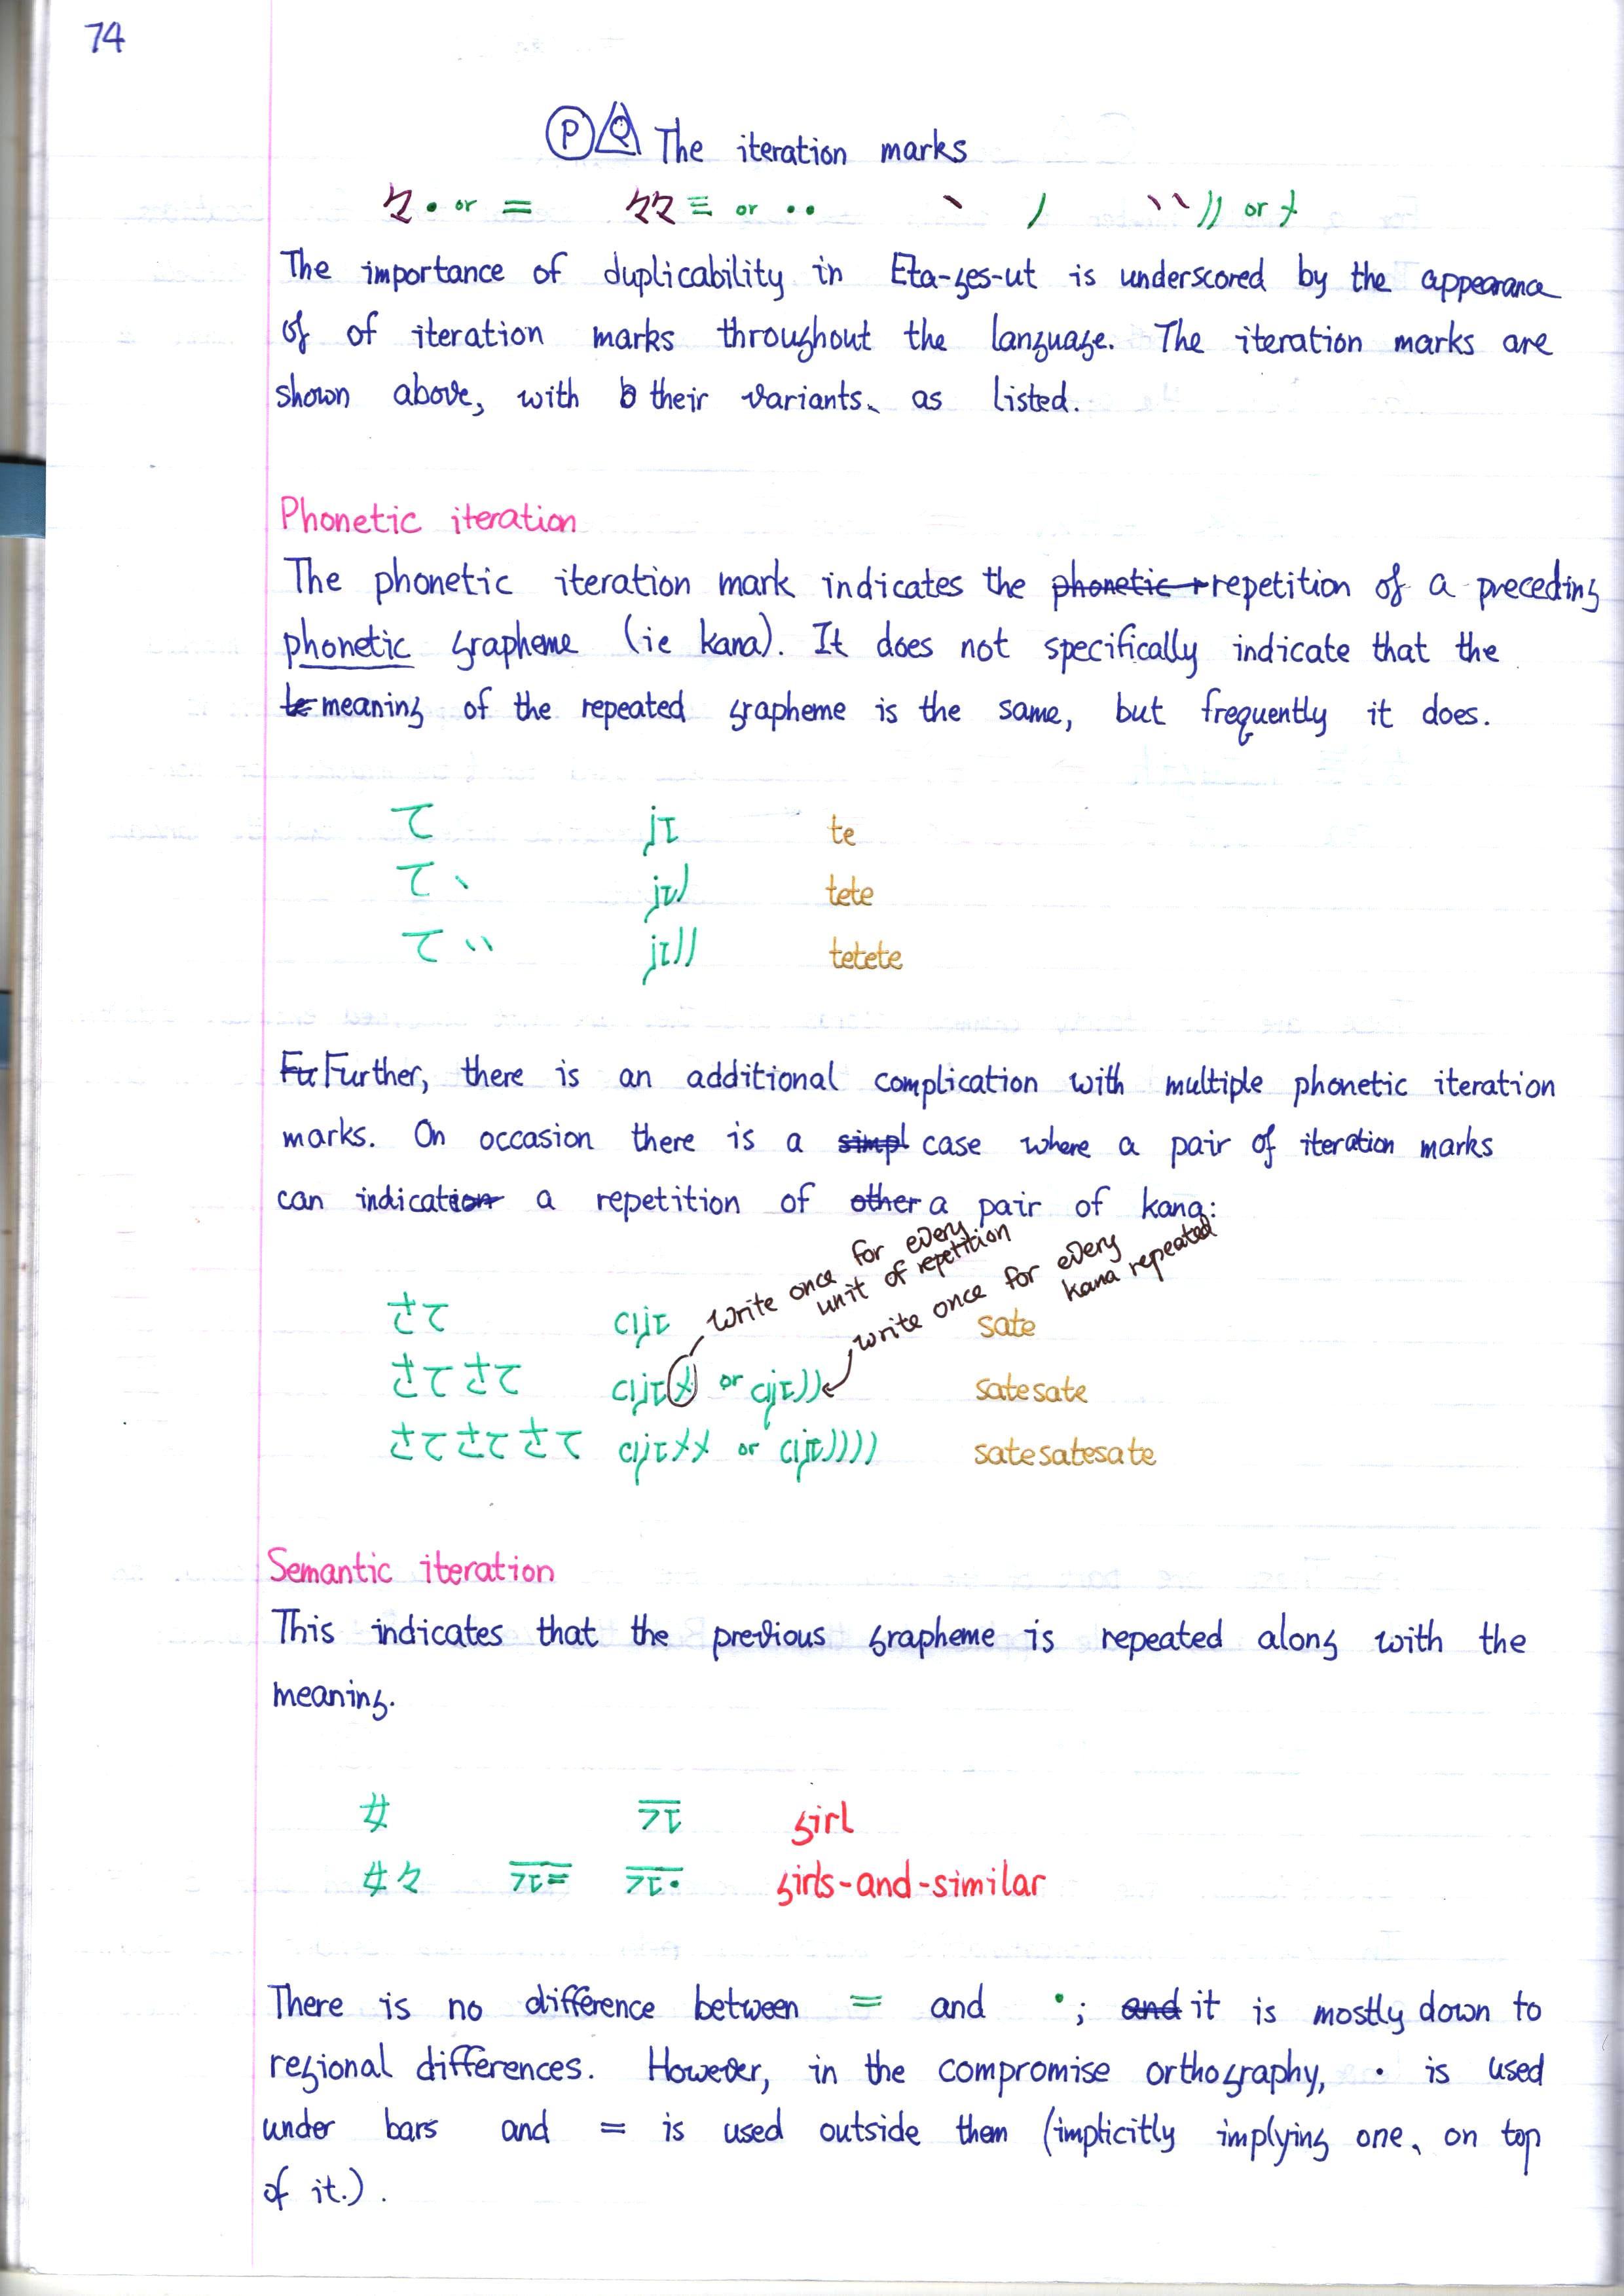 74
Ⓟ Q The iteration marks
々・ or = 々々 ≡ or ・・ ヽ ) ヽヽ )) or
The importance of duplicability in Eta-ges-ut is underscored by the appearance
of of iteration marks throughout the language. The iteration marks are
shown above, with their variants, as listed.
Phonetic iteration
The phonetic iteration mark indicates the phonetic r repetition of a preceding
phonetic grapheme (ie kana). It does not specifically indicate that the
te meaning of the repeated grapheme is the same, but frequently it does.
て te
てヽ tete
てヽヽ tetete
Fu Further, there is an additional complication with multiple phonetic iteration
marks. On occasion there is a simpl case where a pair of iteration marks
can indication a repetition of other a pair of kana:
write once for every
unit of repetition
write once for every
kana repeated
さて sate
さてさて or satesate
さてさてさて or satesatesate
Semantic iteration
This indicates that the previous grapheme is repeated along with the
meaning.
女 girl
女々 girls-and-similar
There is no difference between = and ・; and it is mostly down to
regional differences. However, in the compromise orthography, ・ is used
under bars and = is used outside them (implicitly implying one, on top
of it.).